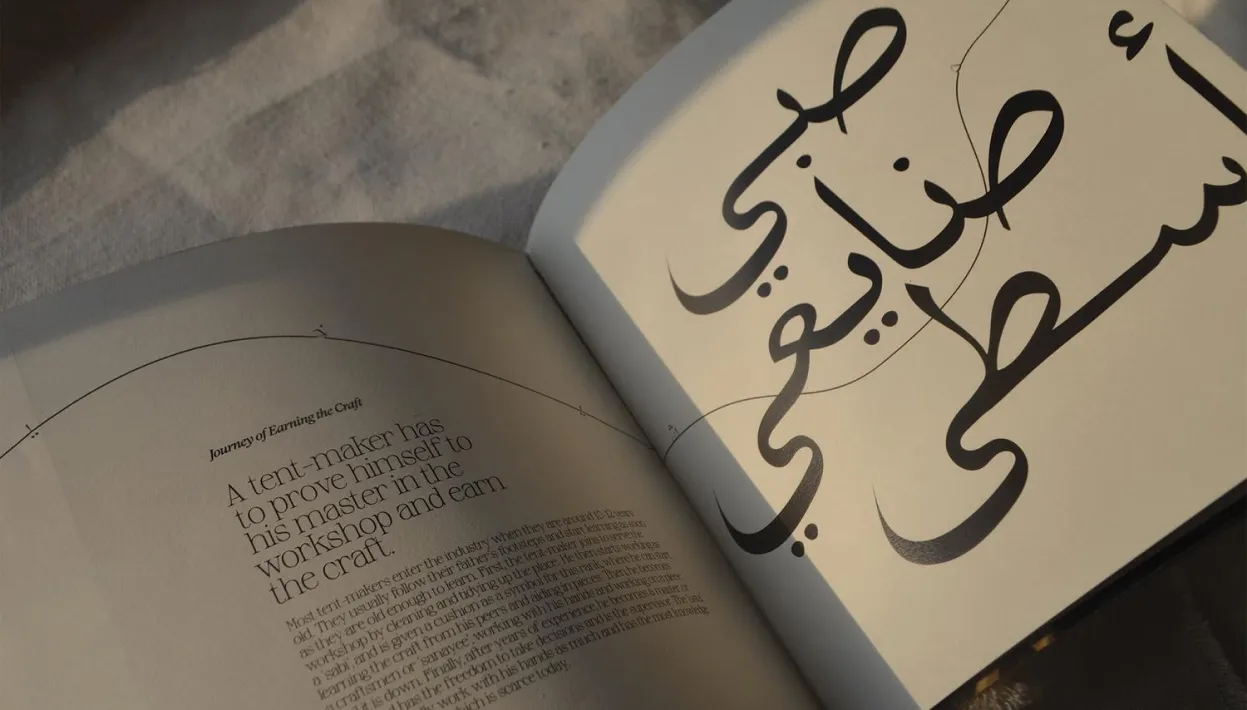 Journey of Earning the Craft
A tent-maker has
to prove himself to
his master in the
workshop and earn
the craft.
Most tent-makers enter the industry when they are around 10-12 years
old. They usually follow their father's footsteps and start learning as soon
as they are old enough to learn. First, the tent-maker joins to serve the
workshop by cleaning and tidying up the place. He then starts working as
a 'sabi', and is given a cushion as a symbol for this rank, where he can start
learning the craft from his peers and aiding in pieces. Then he becomes
a craftsmen or 'sanayee', working with his hands and working on piece
is down. Finally, after years of experience, he becomes a master or
has the freedom to take decisions and is the supervisor. The
work with his hands as much and has the most knowledge
which is scarce today.
صبي
صنايعي
أسطى